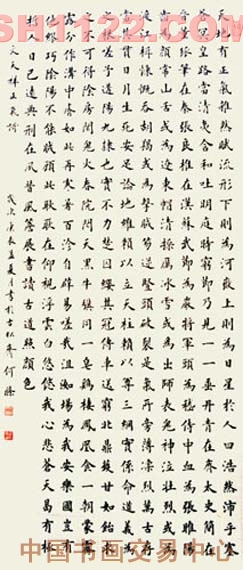 SH1122.COM
天地有正氣雜然賦流形下則為河嶽上則為日星於人曰浩然沛乎塞
蒼冥皇路當清夷含和吐明庭時窮節乃見一一垂丹青在齊太史簡在
晉董狐筆在秦張良椎在漢蘇武節為嚴將軍頭為嵇侍中血為張睢陽
齒為顏常山舌或為遼東帽清操厲冰雪或為出師表鬼神泣壯烈或為
渡江楫慷慨吞胡羯或為擊賊笏逆豎頭破裂是氣所磅礴凜烈萬古存
當其貫日月生死安足論地維賴以立天柱賴以尊三綱實係命道義為
之根嗟予遘陽九隸也實不力楚囚纓其冠傳車送窮北鼎鑊甘如飴求
之不可得陰房闃鬼火春院閟天黑牛驥同一皂雞棲鳳凰食一朝蒙霧
露分作溝中瘠如此再寒暑百沴自辟易嗟哉沮洳場為我安樂國豈有
他繆巧陰陽不能賊顧此耿耿在仰視浮雲白悠悠我心悲蒼天曷有極
哲人日已遠典刑在夙昔風簷展書讀古道照顏色
文天祥正氣歌
歲次庚辰孟夏月書於古松齋 何
中国书画交易中心